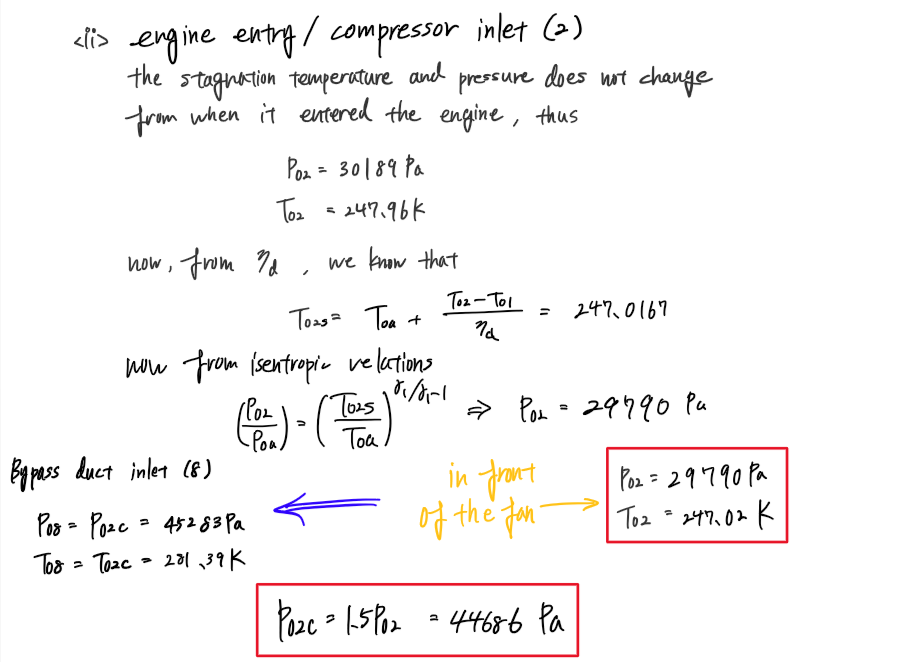 <ii> engine entry / compressor inlet (2)
the stagnation temperature and pressure does not change
from when it entered the engine, thus
P02 = 30189 Pa
T02 = 247.96K
now, from ηd , we know that
T02s = T0a + (T02-T01)/ηd = 247.0167
now from isentropic relations
(P02/P0a) = (T02s/T0a)^γ1/γ1-1 ⇒ P02 = 29790 Pa
Bypass duct inlet (8)
P08 = P02c = 45283Pa
T08 = T02c = 281.39K
in front
of the fan
P02 = 29790 Pa
T02 = 247.02 K
P02c = 1.5P02 = 44686 Pa